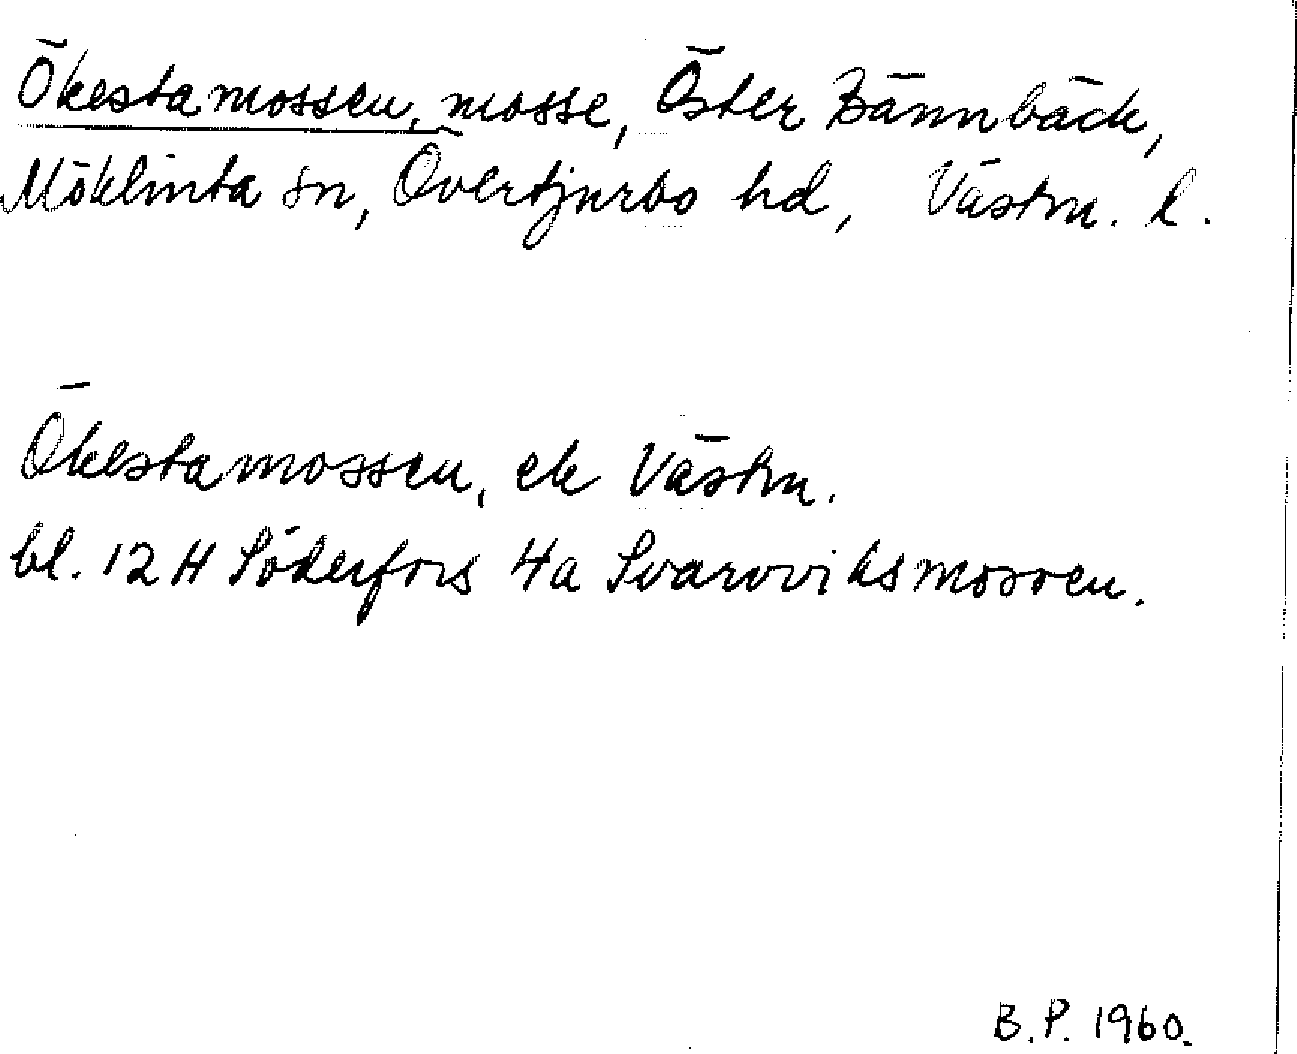 Ökestamossen, mosse, Öster Bännbäck,
Möklinta sn, Övertjurbo hd, Västm. l.
Ökestamossen, ek Västm.
bl. 12 H Söderfors 4a Svarvviksmossen.
B.P. 1960.